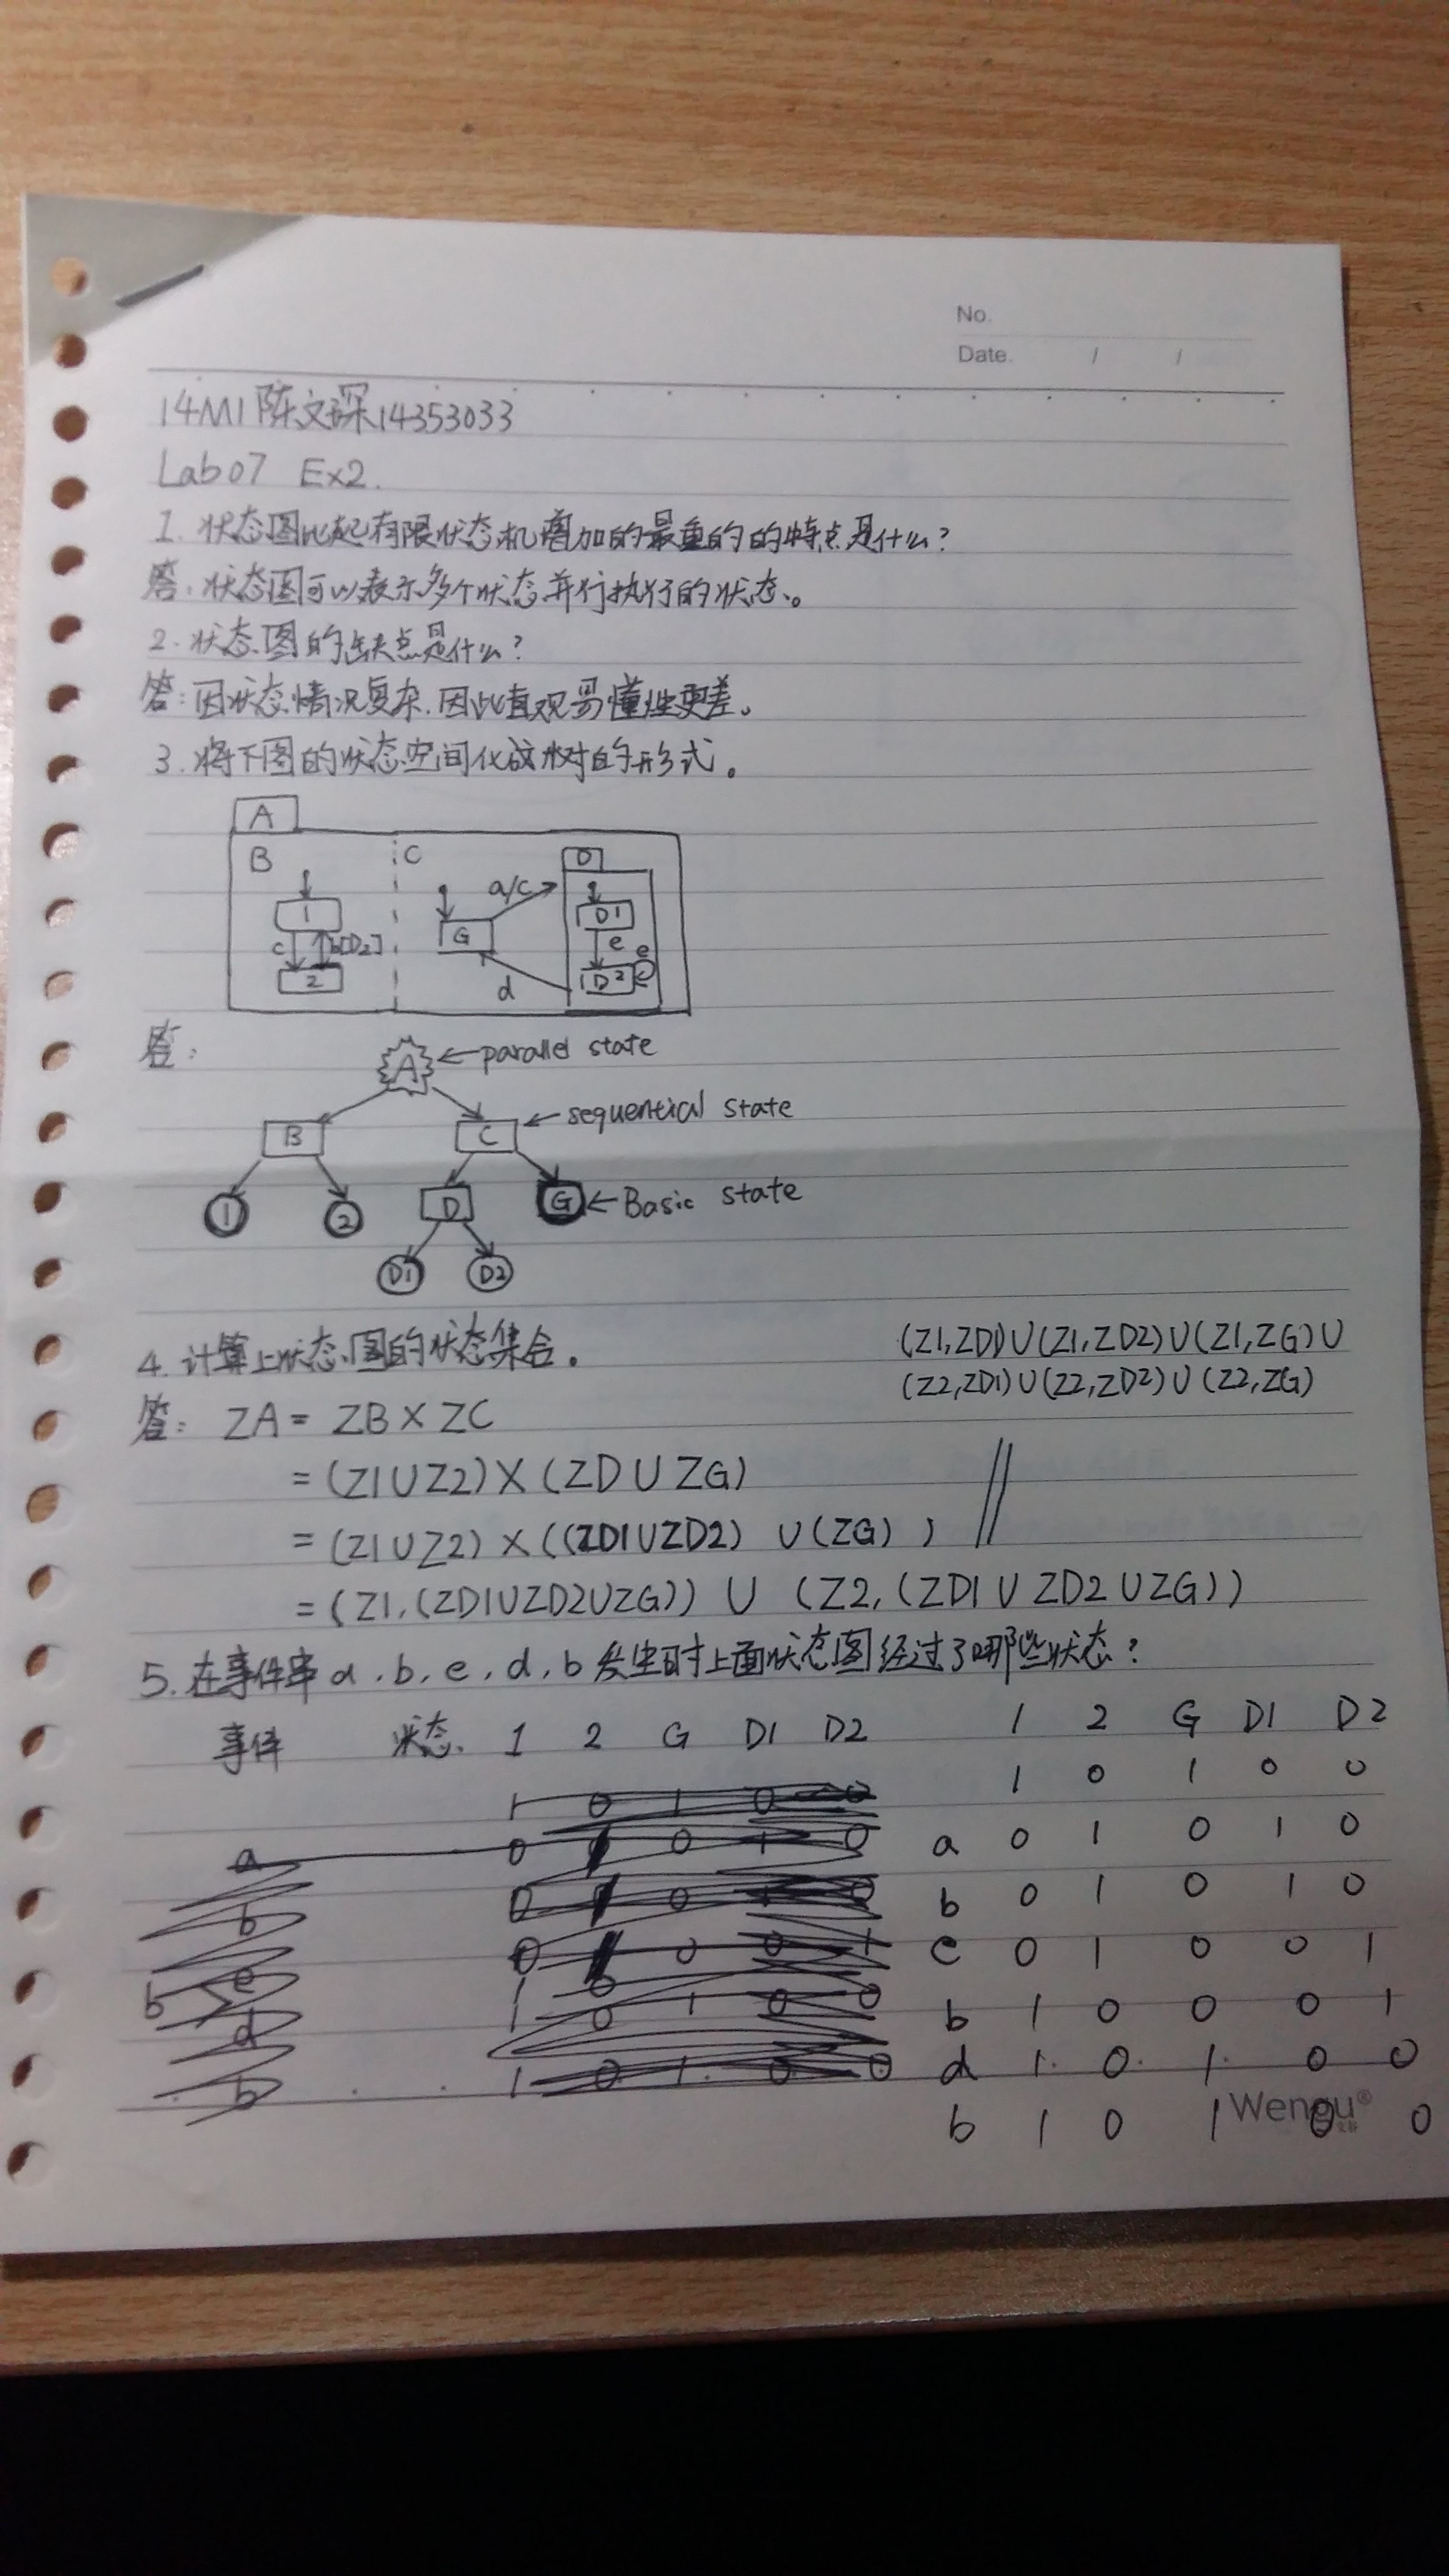 No.
Date. / /
14M1 陈文琛 14353033
Lab07 Ex2.
1. 状态图比起有限状态机增加的最重的的特点是什么?
答: 状态图可以表示多个状态并行执行的状态。
2. 状态图的缺点是什么?
答: 因状态情况复杂, 因此直观易懂性更差。
3. 将下图的状态空间化成树的形式。
A
B C D
a/c
1 G D1
c b[D2] e e
2 d D2
答:
A ← parallel state
B C ← sequential state
1 2 D G ← Basic state
D1 D2
4. 计算上状态图的状态集合。
(Z1,ZD1)∪(Z1,ZD2)∪(Z1,ZG)∪
(Z2,ZD1)∪(Z2,ZD2)∪(Z2,ZG)
答: ZA = ZB × ZC
= (Z1∪Z2) × (ZD∪ZG)
= (Z1∪Z2) × ((ZD1∪ZD2) ∪(ZG))
= (Z1,(ZD1∪ZD2∪ZG)) ∪ (Z2,(ZD1∪ZD2∪ZG))
5. 在事件串a,b,e,d,b发生时上面状态图经过了哪些状态?
事件 状态 1 2 G D1 D2
1 2 G D1 D2
1 0 1 0 0
a 0 1 0 1 0
b 0 1 0 1 0
e 0 1 0 0 1
b 1 0 0 0 1
d 1 0 1 0 0
b 1 0 1 0 0
Wengu®